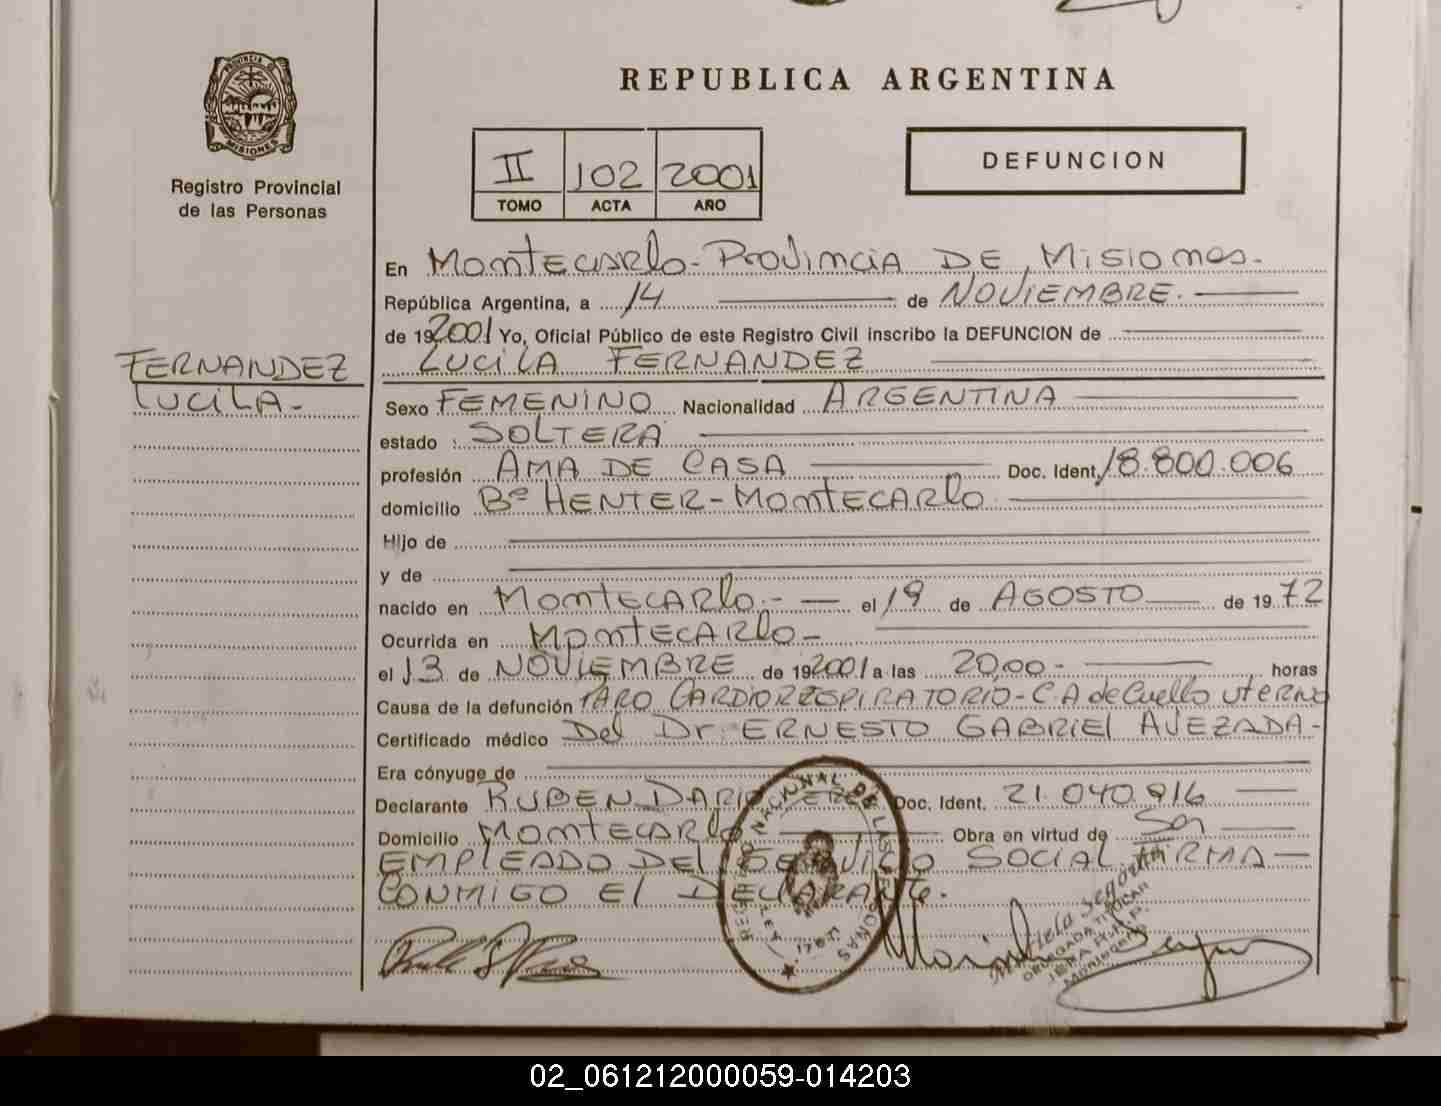 PROVINCIA DE
MISIONES
Registro Provincial
de las Personas
REPUBLICA ARGENTINA
II 102 2001
TOMO ACTA AÑO
DEFUNCION
En Montecarlo - Provincia DE Misiones.
República Argentina, a 14 de NOVIEMBRE.
de 19 2001 Yo, Oficial Público de este Registro Civil inscribo la DEFUNCION de
LUCILA FERNANDEZ
FERNANDEZ
LUCILA -
Sexo FEMENINO Nacionalidad ARGENTINA
estado : SOLTERA
profesión AMA DE CASA Doc. Ident. 18.800.006
domicilio Bº HENTER - MONTECARlo
Hijo de
y de
nacido en MONTECARlo - el 19 de AGOSTO de 19 72
Ocurrida en MONTECARlo -
el 13 de NOVIEMBRE de 19 2001 a las 20,00 - horas
Causa de la defunción PARO CARDIORRESPIRATORIO - C.A de Cuello uterno
Certificado médico Del Dr. ERNESTO GABRIEL AVEZADA -
Era cónyuge de
Declarante RUBEN DARIO Doc. Ident. 21.040.916
Domicilio MONTECARlo Obra en virtud de Ser
EMPLEADO DEL SERVICIO SOCIAL. FIRMA -
CONMIGO El DECLARANTE.
REGISTRO NACIONAL DE LAS PERSONAS
DELEGADA TITULAR
02_061212000059-014203